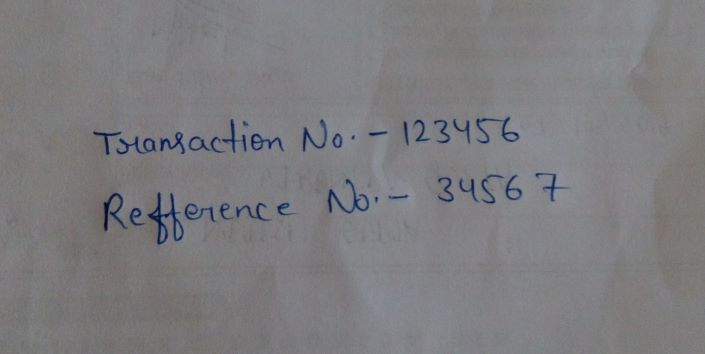 Transaction No. - 123456
Refference No. - 34567